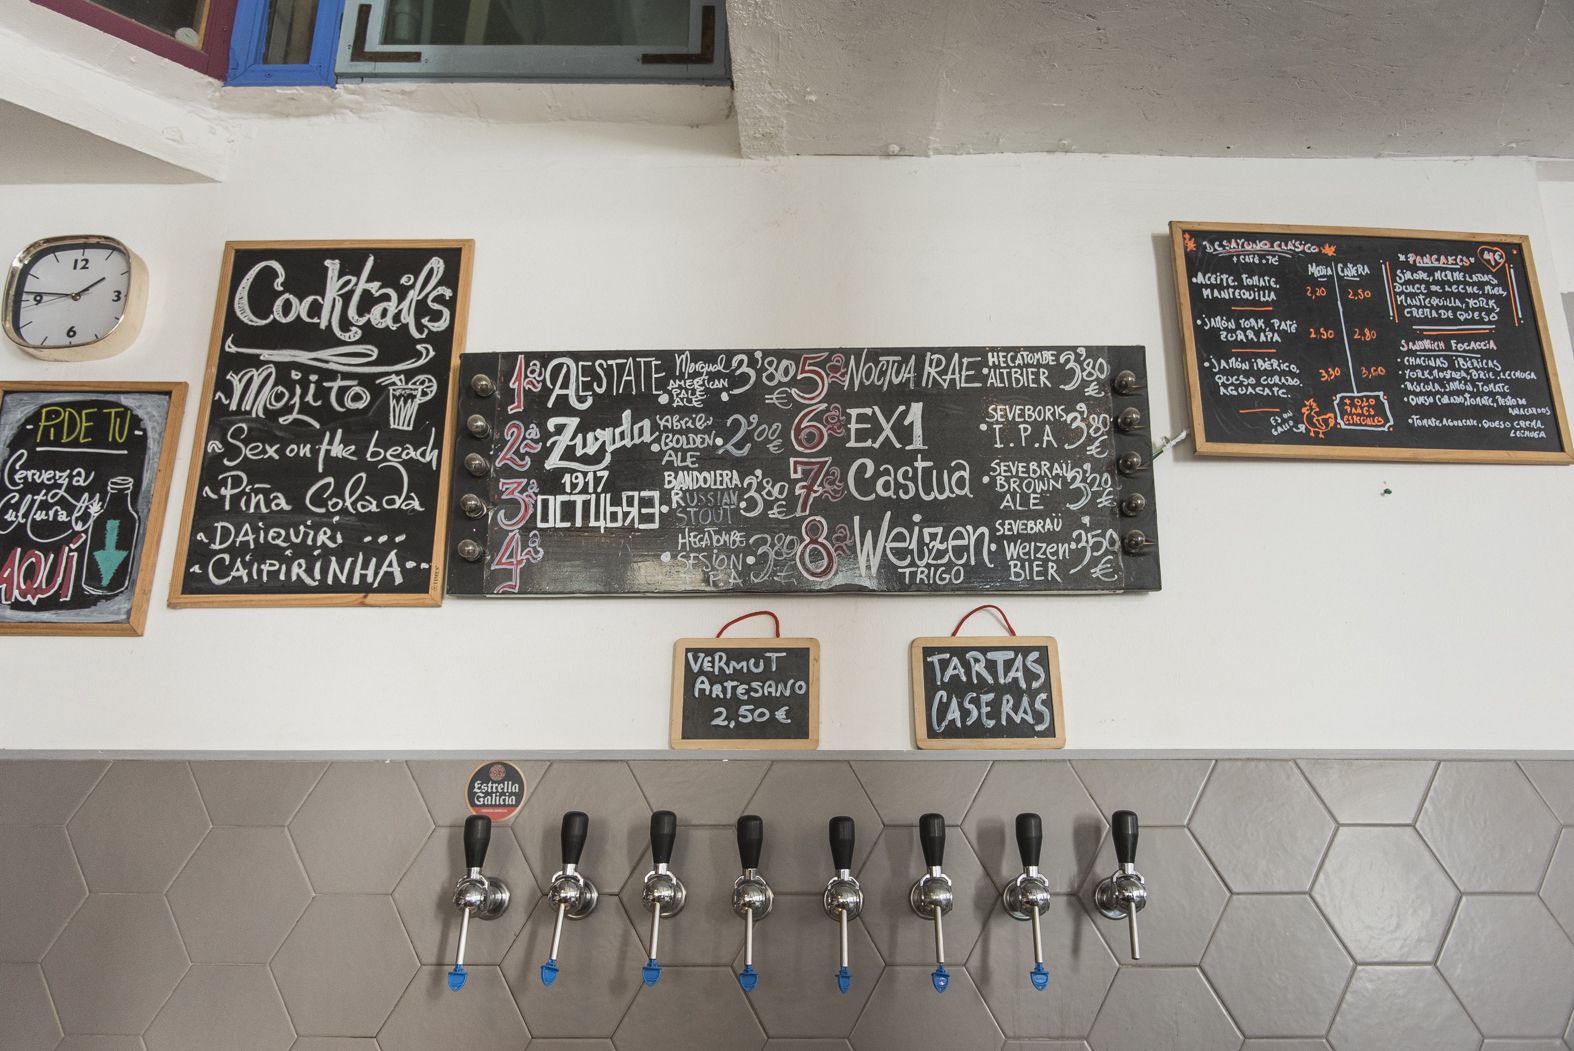 12
3
6
9
PIDE TU
Cerveza
Cultural
AQUÍ
Cocktails
~Mojito
~Sex on the beach
~Piña Colada
~DAIQUIRI ...
~CAIPIRINHA...
1ª AESTATE
AMERICAN
PALE
ALE
3'80
€
2ª Zurda
GOLDEN
ALE
2'00
€
3ª 1917
OCTUBRE
BANDOLERA
RUSSIAN
STOUT
3'80
€
4ª
HECATOMBE
SESION
IPA
3'80
€
5ª NOCTUA IRAE
HECATOMBE
ALTBIER
3'80
€
6ª EX1
SEVEBORIS
I.P.A
3'80
€
7ª Castua
SEVEBRAÜ
BROWN
ALE
3'20
€
8ª Weizen
TRIGO
SEVEBRAÜ
Weizen
BIER
3'50
€
DESAYUNO CLÁSICO
+ CAFÉ o TÉ
MEDIA ENTERA
• ACEITE, TOMATE,
MANTEQUILLA 2,20 2,50
• JAMÓN YORK, PATÉ
ZURRAPA 2,50 2,80
• JAMÓN IBÉRICO,
QUESO CURADO,
AGUACATE. 3,30 3,60
+ 0,20
PANES
ESPECIALES
"PANCAKES" 4€
SIROPE, MERMELADAS
DULCE DE LECHE, MIEL,
MANTEQUILLA, YORK,
CREMA DE QUESO
SANDWICH FOCACCIA
• CHACINAS IBÉRICAS
• YORK, MOSTAZA, BRIE, LECHUGA
• RÚCULA, JAMÓN, TOMATE
• QUESO CURADO, TOMATE, PESTO DE
ANACARDOS
• TOMATE, AGUACATE, QUESO CREMA
LECHUGA
VERMUT
ARTESANO
2,50 €
TARTAS
CASERAS
Estrella
Galicia